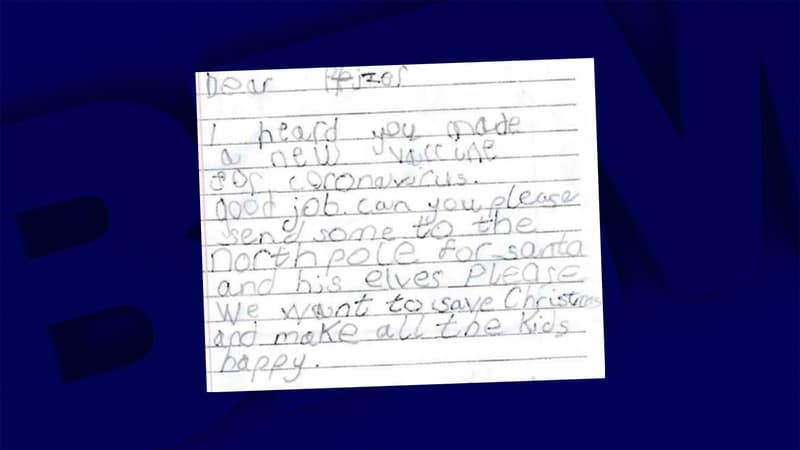 Dear Pfizer
I heard you made
a new vaccine
for coronavirus.
good job. can you please
send some to the
north pole for santa
and his elves please
We want to save Christmas
and make all the kids
happy.